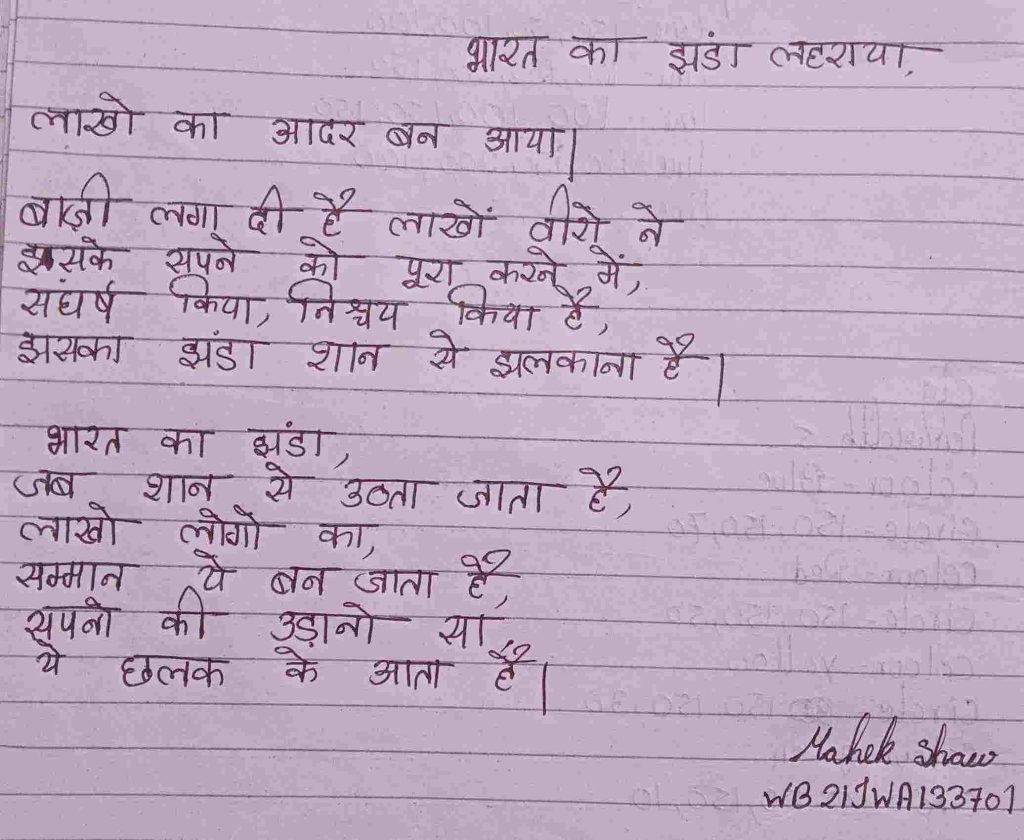 भारत का झंडा लहराया,
लाखो का आदर बन आया।
बाज़ी लगा दी है लाखों वीरो ने
इसके सपने को पूरा करने में,
संघर्ष किया, निश्चय किया है,
इसका झंडा शान से झलकाना है।
भारत का झंडा,
जब शान से उठता जाता है,
लाखो लोगो का,
सम्मान ये बन जाता है,
सपनो की उड़ानो सा,
ये छलक के आता है।
Mahek Shaw
WB21JWA133701